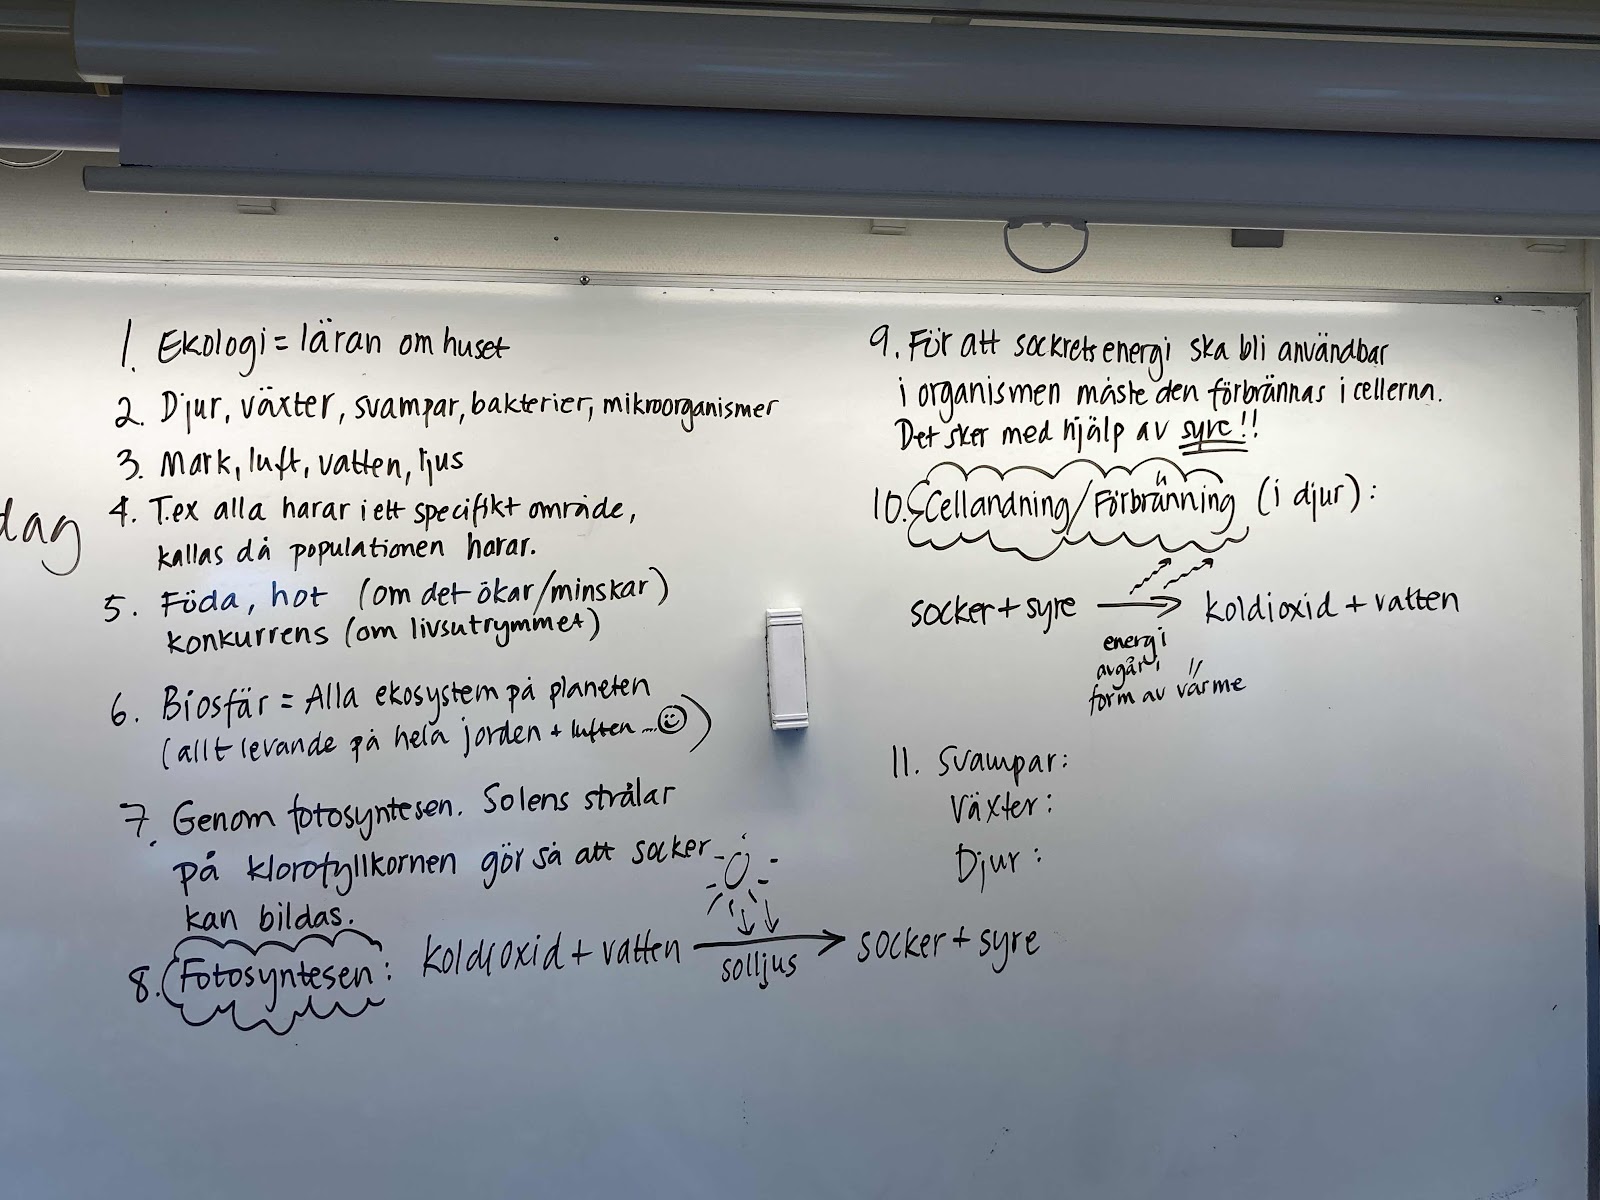 dag
1. Ekologi = läran om huset
2. Djur, växter, svampar, bakterier, mikroorganismer
3. Mark, luft, vatten, ljus
4. T.ex alla harar i ett specifikt område,
kallas då populationen harar.
5. Föda, hot (om det ökar/minskar)
konkurrens (om livsutrymmet)
6. Biosfär = Alla ekosystem på planeten
(allt levande på hela jorden + luften ...☺)
7. Genom fotosyntesen. Solens strålar
på klorofyllkornen gör så att socker
kan bildas.
8. Fotosyntesen: koldioxid + vatten → socker + syre
solljus
9. För att sockrets energi ska bli användbar
i organismen måste den förbrännas i cellerna.
Det sker med hjälp av syre!!
10. Cellandning/Förbränning (i djur):
socker + syre → koldioxid + vatten
energi
avgår i
form av värme
11. Svampar:
Växter:
Djur: